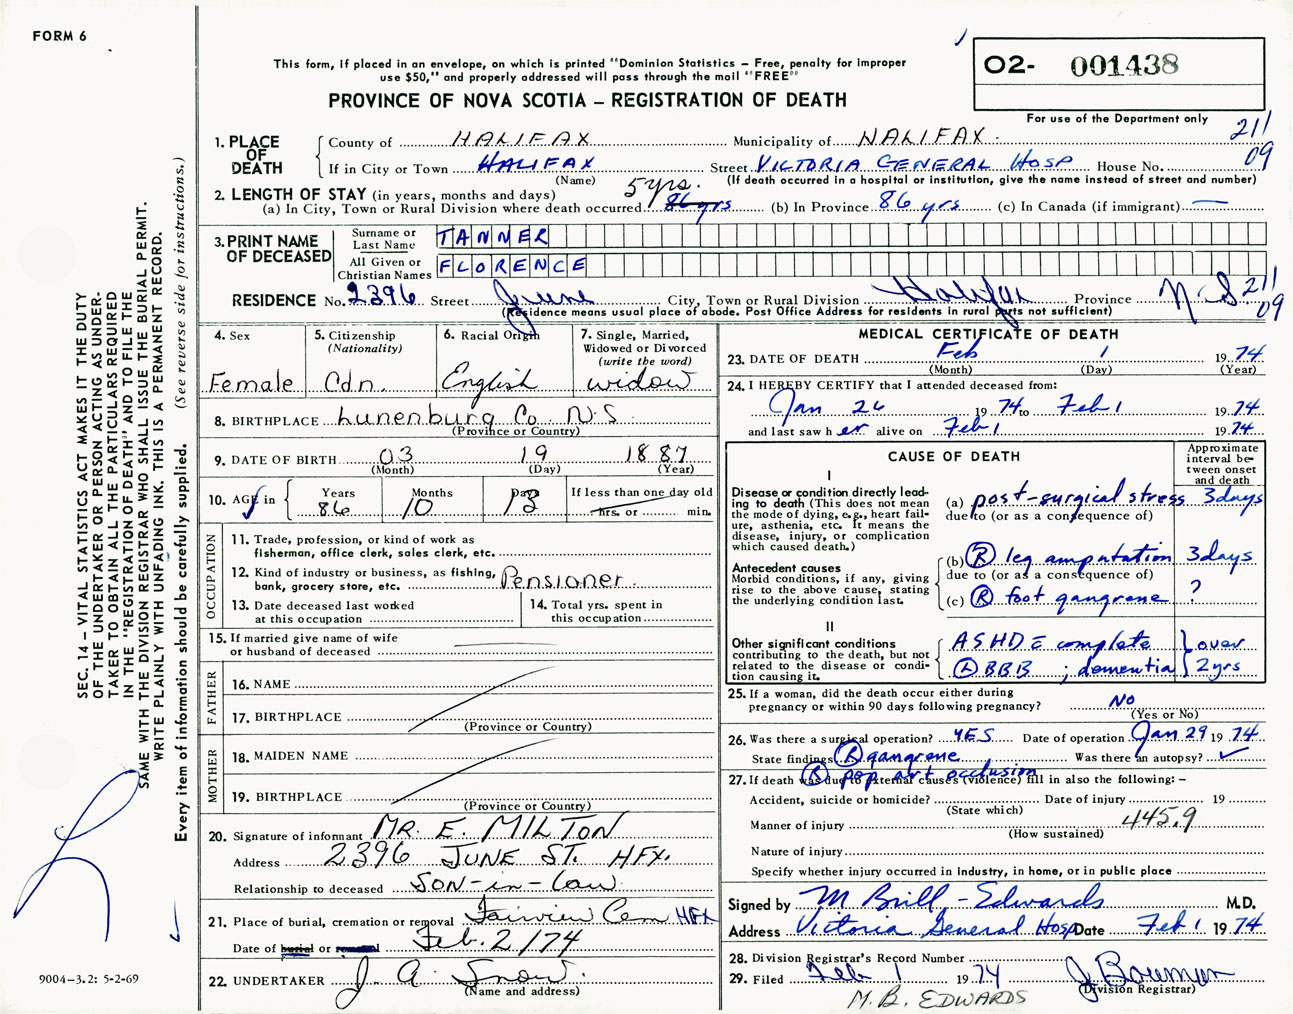 FORM 6
This form, if placed in an envelope, on which is printed "Dominion Statistics — Free, penalty for improper
use $50," and properly addressed will pass through the mail "FREE"
PROVINCE OF NOVA SCOTIA – REGISTRATION OF DEATH
02- 001438
For use of the Department only
211
09
1. PLACE OF DEATH
County of HALIFAX Municipality of HALIFAX.
If in City or Town HALIFAX Street VICTORIA GENERAL HOSP House No.
(Name) (If death occurred in a hospital or institution, give the name instead of street and number)
2. LENGTH OF STAY (in years, months and days) 5 yrs.
(a) In City, Town or Rural Division where death occurred 86 yrs (b) In Province 86 yrs (c) In Canada (if immigrant) —
3. PRINT NAME OF DECEASED
Surname or Last Name TANNER
All Given or Christian Names FLORENCE
RESIDENCE No. 2396 Street June City, Town or Rural Division Halifax Province N.S. 211
09
(Residence means usual place of abode. Post Office Address for residents in rural parts not sufficient)
4. Sex
Female
5. Citizenship
(Nationality)
Cdn.
6. Racial Origin
English
7. Single, Married,
Widowed or Divorced
(write the word)
widow
8. BIRTHPLACE Lunenburg Co. N.S.
(Province or Country)
9. DATE OF BIRTH 03 19 1887
(Month) (Day) (Year)
10. AGE in Years 86 Months 10 Days 13 If less than one day old
hrs. or min.
OCCUPATION
11. Trade, profession, or kind of work as
fisherman, office clerk, sales clerk, etc.
12. Kind of industry or business, as fishing,
bank, grocery store, etc. Pensioner
13. Date deceased last worked
at this occupation
14. Total yrs. spent in
this occupation
15. If married give name of wife
or husband of deceased
FATHER
16. NAME
17. BIRTHPLACE
(Province or Country)
MOTHER
18. MAIDEN NAME
19. BIRTHPLACE
(Province or Country)
20. Signature of informant MR. E. MILTON
Address 2396 JUNE ST. HFX.
Relationship to deceased SON-in-law
21. Place of burial, cremation or removal Fairview Cem HFX
Date of burial or removal Feb. 2/74
22. UNDERTAKER J. A. Snow.
(Name and address)
MEDICAL CERTIFICATE OF DEATH
23. DATE OF DEATH Feb 1 1974
(Month) (Day) (Year)
24. I HEREBY CERTIFY that I attended deceased from:
Jan 26 1974 to Feb 1 1974
and last saw her alive on Feb 1 1974
CAUSE OF DEATH
Approximate
interval be-
tween onset
and death
I
Disease or condition directly lead-
ing to death (This does not mean
the mode of dying, e.g., heart fail-
ure, asthenia, etc. It means the
disease, injury, or complication
which caused death.)
(a) post-surgical stress 3days
due to (or as a consequence of)
Antecedent causes
Morbid conditions, if any, giving
rise to the above cause, stating
the underlying condition last.
(b) Ⓡ leg amputation 3days
due to (or as a consequence of)
(c) Ⓡ foot gangrene ?
II
Other significant conditions
contributing to the death, but not
related to the disease or condi-
tion causing it.
ASHD c̄ complete
Ⓛ BBB ; dementia
over
2yrs
25. If a woman, did the death occur either during
pregnancy or within 90 days following pregnancy? NO
(Yes or No)
26. Was there a surgical operation? YES Date of operation Jan 29 1974
State findings Ⓡ gangrene Was there an autopsy? ✓
Ⓡ pop art occlusion
27. If death was due to external causes (violence) fill in also the following: –
Accident, suicide or homicide? Date of injury 19
(State which)
Manner of injury 445.9
(How sustained)
Nature of injury
Specify whether injury occurred in industry, in home, or in public place
Signed by M Brill-Edwards M.D.
Address Victoria General Hosp Date Feb 1 1974
28. Division Registrar's Record Number
29. Filed Feb 1 1974 J Bowman
(Division Registrar)
M.B. EDWARDS
SEC. 14 – VITAL STATISTICS ACT MAKES IT THE DUTY
OF THE UNDERTAKER OR PERSON ACTING AS UNDER-
TAKER TO OBTAIN ALL THE PARTICULARS REQUIRED
IN THE "REGISTRATION OF DEATH" AND TO FILE THE
SAME WITH THE DIVISION REGISTRAR WHO SHALL ISSUE THE BURIAL PERMIT.
WRITE PLAINLY WITH UNFADING INK. THIS IS A PERMANENT RECORD.
Every item of information should be carefully supplied. (See reverse side for instructions.)
9004-3.2: 5-2-69